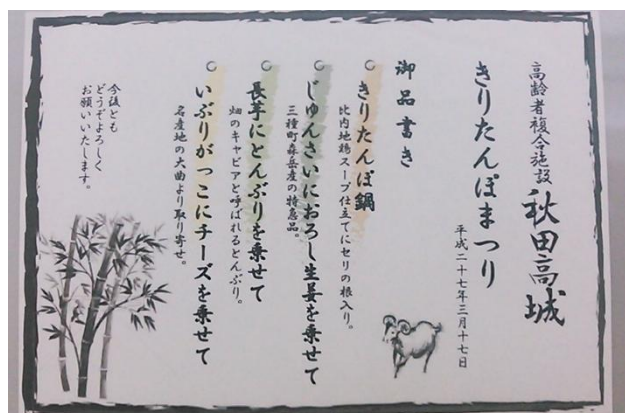 高齢者複合施設 秋田高城
きりたんぽまつり
平成二十七年三月十七日
御品書き
きりたんぽ鍋
比内地鶏スープ仕立てにセリの根入り。
じゅんさいにおろし生姜を乗せて
三種町森岳産の特急品。
長芋にとんぶりを乗せて
畑のキャビアと呼ばれるとんぶり。
いぶりがっこにチーズを乗せて
名産地の大曲より取り寄せ。
今後とも
どうぞよろしく
お願いいたします。